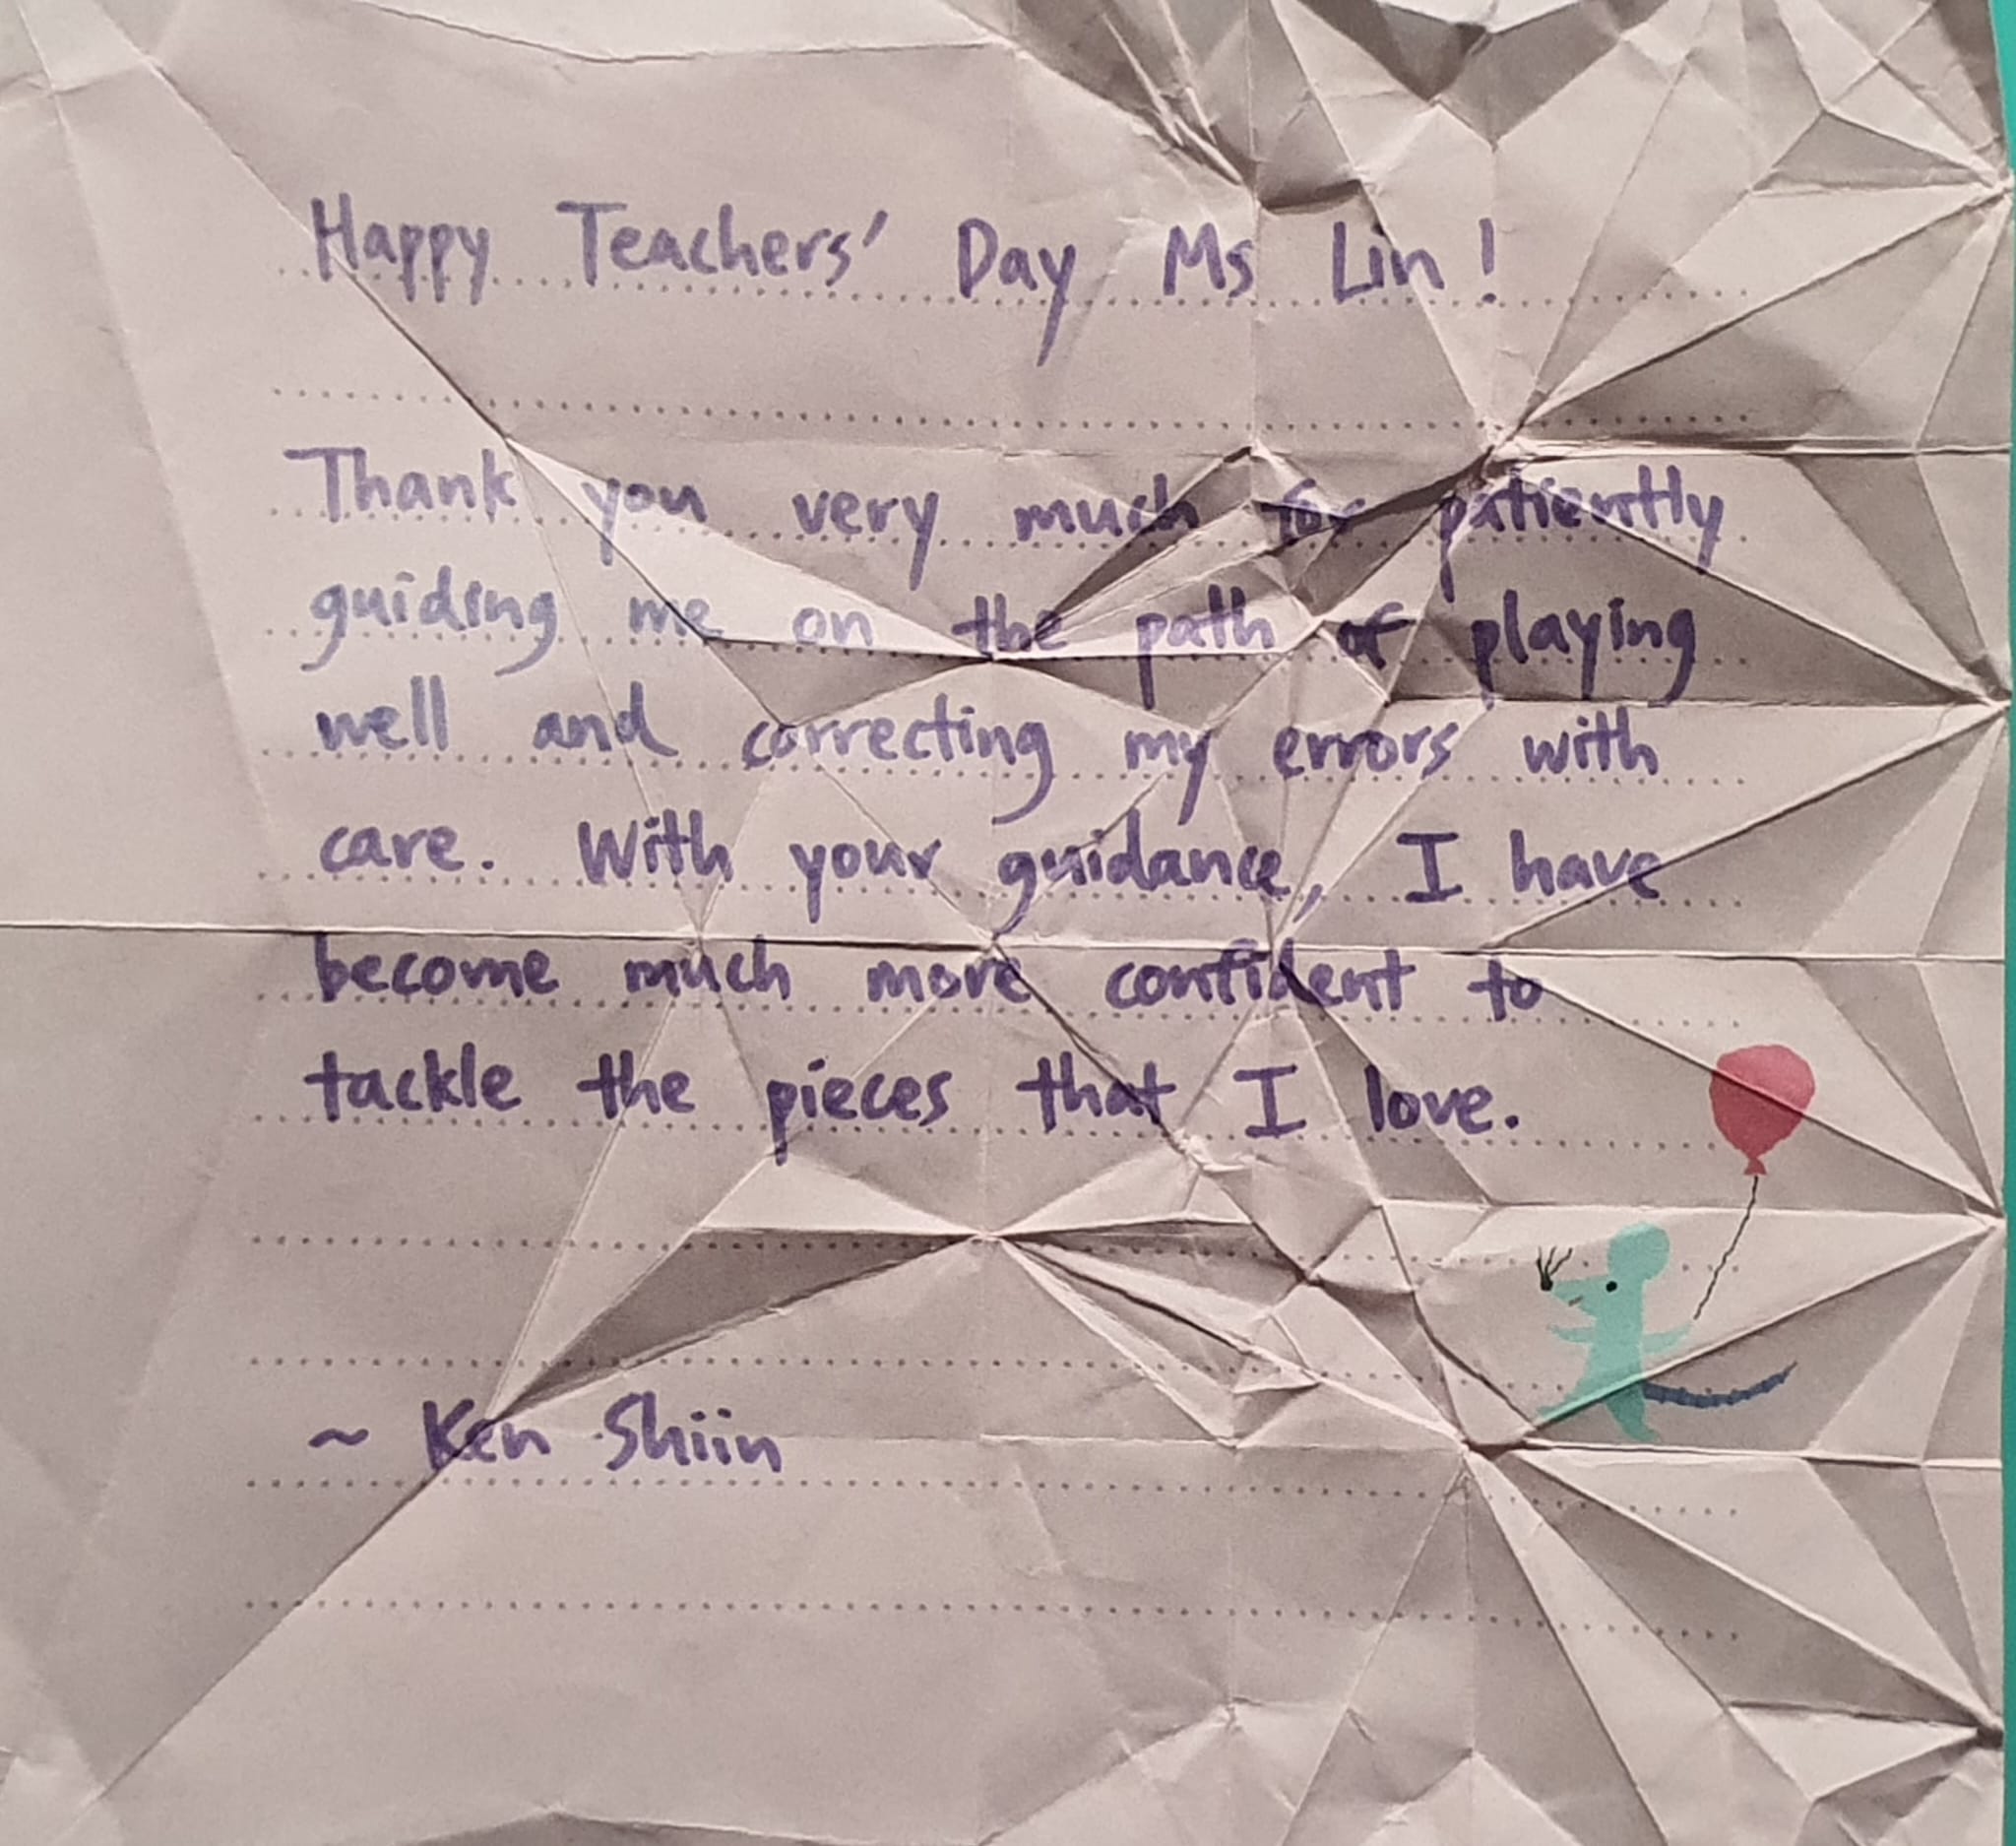 Happy Teachers' Day Ms Lin!
Thank you very much for patiently
guiding me on the path of playing
well and correcting my errors with
care. With your guidance, I have
become much more confident to
tackle the pieces that I love.
~ Ken Shiin